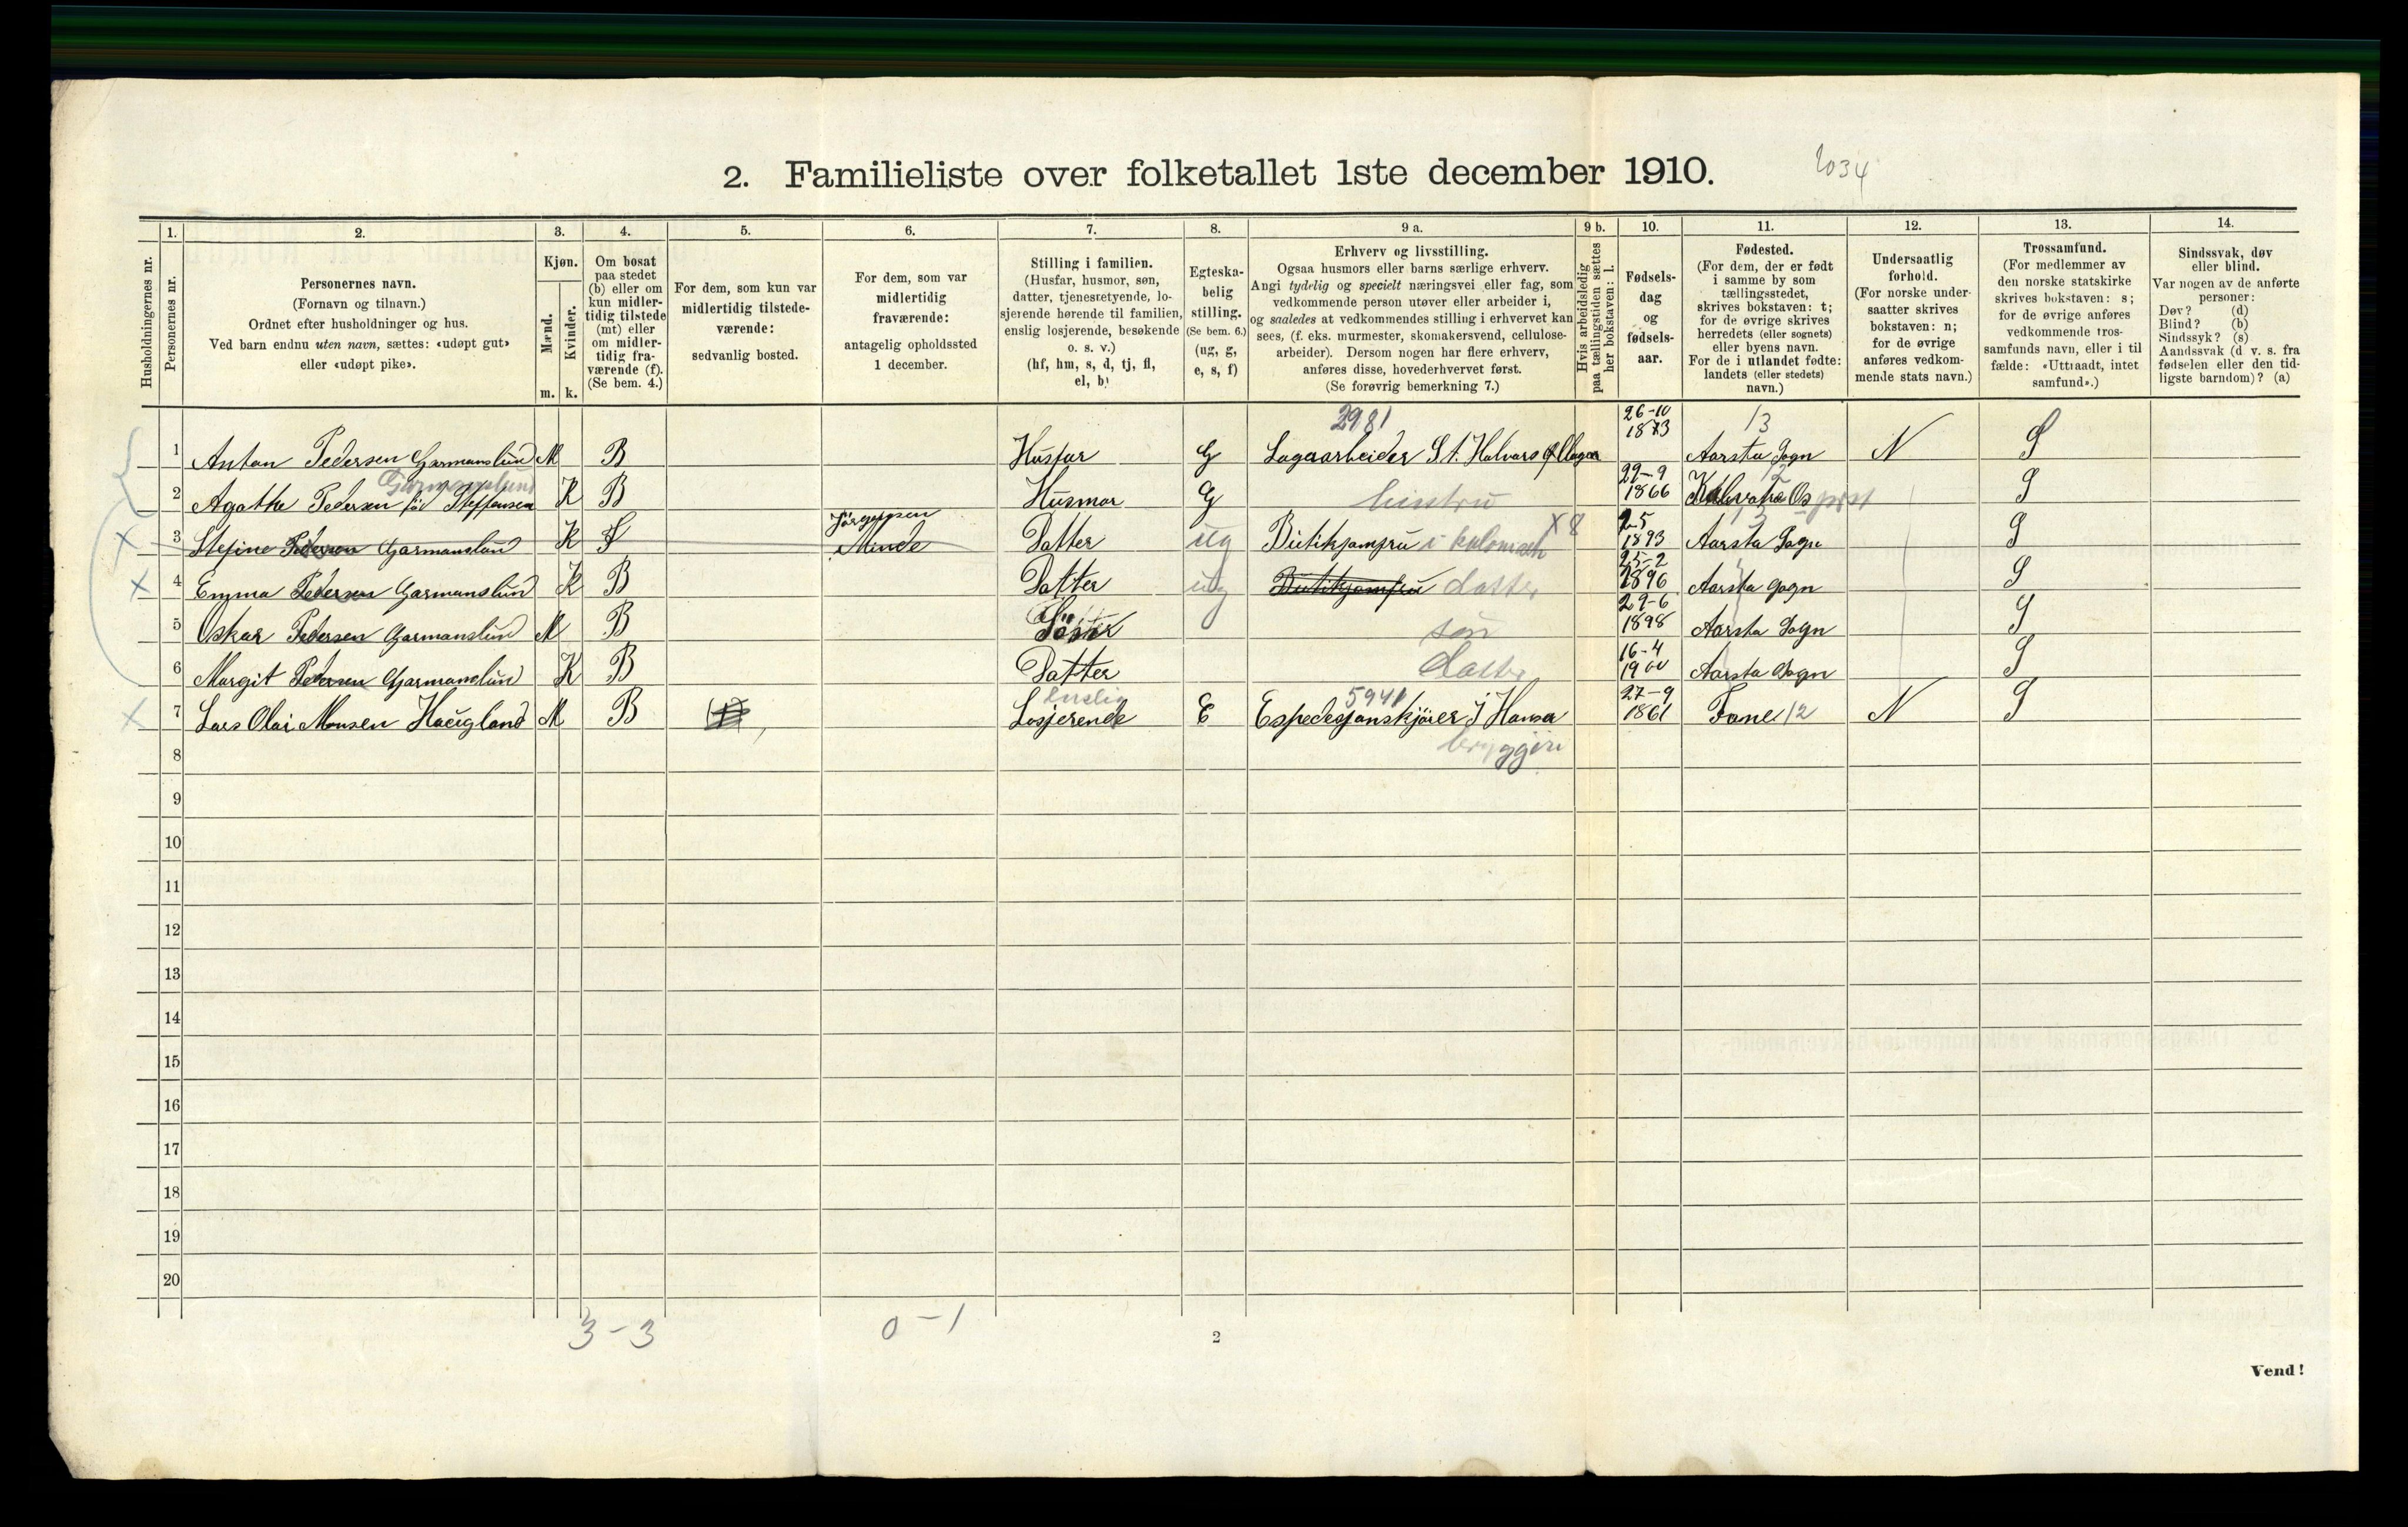 2. Familieliste over folketallet 1ste december 1910.
2034
Husholdningernes nr.
1. Personernes nr.
2. Personernes navn.
(Fornavn og tilnavn.)
Ordnet efter husholdninger og hus.
Ved barn endnu uten navn, sættes: «udøpt gut»
eller «udøpt pike».
3. Kjøn.
Mænd. m.
Kvinder. k.
4. Om bosat
paa stedet
(b) eller om
kun midler-
tidig tilstede
(mt) eller
om midler-
tidig fra-
værende (f).
(Se bem. 4.)
5. For dem, som kun var
midlertidig tilstede-
værende:
sedvanlig bosted.
6. For dem, som var
midlertidig
fraværende:
antagelig opholdssted
1 december.
7. Stilling i familien.
(Husfar, husmor, søn,
datter, tjenestetyende, lo-
sjerende hørende til familien,
enslig losjerende, besøkende
o. s. v.)
(hf, hm, s, d, tj, fl,
el, b)
8. Egteska-
belig
stilling.
(Se bem. 6.)
(ug, g,
e, s, f)
9 a. Erhverv og livsstilling.
Ogsaa husmors eller barns særlige erhverv.
Angi tydelig og specielt næringsvei eller fag, som
vedkommende person utøver eller arbeider i,
og saaledes at vedkommendes stilling i erhvervet kan
sees, (f. eks. murmester, skomakersvend, cellulose-
arbeider). Dersom nogen har flere erhverv,
anføres disse, hovederhvervet først.
(Se forøvrig bemerkning 7.)
9 b. Hvis arbeidsledig
paa tællingstiden sættes
her bokstaven: l.
10. Fødsels-
dag
og
fødsels-
aar.
11. Fødested.
(For dem, der er født
i samme by som
tællingsstedet,
skrives bokstaven: t;
for de øvrige skrives
herredets (eller sognets)
eller byens navn.
For de i utlandet fødte:
landets (eller stedets)
navn.)
12. Undersaatlig
forhold.
(For norske under-
saatter skrives
bokstaven: n;
for de øvrige
anføres vedkom-
mende stats navn.)
13. Trossamfund.
(For medlemmer av
den norske statskirke
skrives bokstaven: s;
for de øvrige anføres
vedkommende tros-
samfunds navn, eller i til
fælde: «Uttraadt, intet
samfund».)
14. Sindssvak, døv
eller blind.
Var nogen av de anførte
personer:
Døv? (d)
Blind? (b)
Sindssyk? (s)
Aandssvak (d v. s. fra
fødselen eller den tid-
ligste barndom)? (a)
2981 26-10 13
1 Anton Pedersen Garmanslund M B Husfar G Lagaarbeider St. Halvars Øllager 1873 Aarsta Sogn N S
Garmanslund 29-9 12
2 Agathe Pedersen fød Steffensen K B Husmor G hustru 1866 Os prst S
Jørgensen X8 2-5 13
3 Stefine Pedersen Garmanslund K F Minde Datter ug Butikjomfru i 1893 Aarsta Sogn S
25-2
4 Emma Pedersen Garmanslund K B Datter ug Butikjomfru datter 1896 Aarsta Sogn S
29-6
5 Oskar Pedersen Garmanslund M B søn 1898 Aarsta Sogn S
16-4
6 Margit Pedersen Garmanslund K B Datter datter 1900 Aarsta Sogn S
Enslig 5941 27-9
7 Lars Olai Monsen Haugland M B Losjerende E Espedesjonskjører I Hansa 1861 Fane 12 N S
bryggeri
8
9
10
11
12
13
14
15
16
17
18
19
20
3-3 0-1
2
Vend!